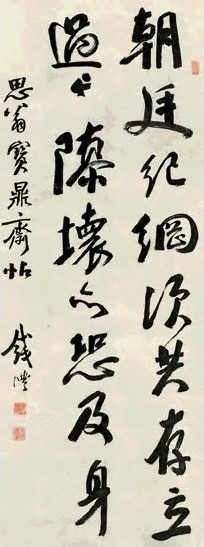 朝廷紀綱須共存立
過尔隳壞亦恐及身
思翁寶鼎齋帖
錢灃